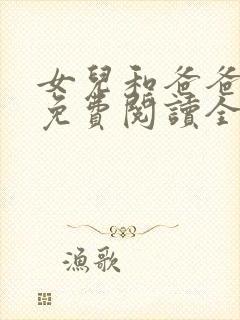 女兒和爸爸
免費閱讀全
漁歌